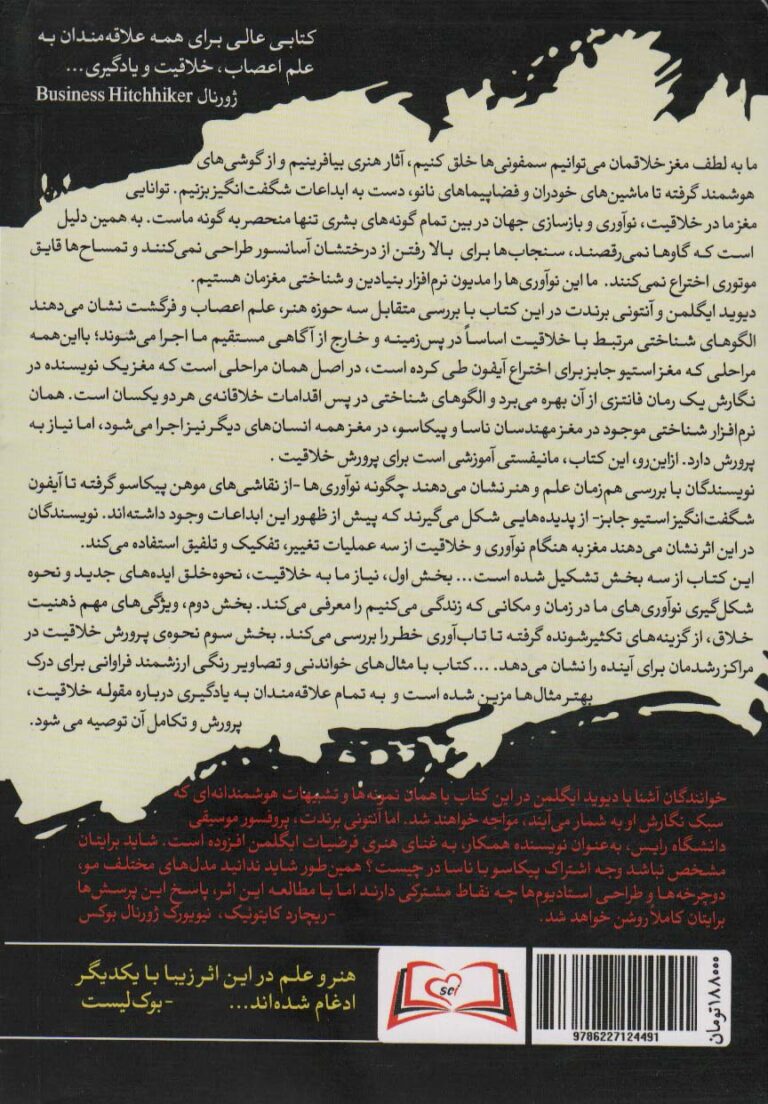 کتابی عالی برای همه علاقه‌مندان به
علم اعصاب، خلاقیت و یادگیری...
ژورنال Business Hitchhiker
ما به لطف مغز خلاقمان می‌توانیم سمفونی‌ها خلق کنیم، آثار هنری بیافرینیم و از گوشی‌های
هوشمند گرفته تا ماشین‌های خودران و فضاپیماهای نانو، دست به ابداعات شگفت‌انگیز بزنیم. توانایی
مغز ما در خلاقیت، نوآوری و بازسازی جهان در بین تمام گونه‌های بشری تنها منحصر به گونه ماست. به همین دلیل
است که گاوها نمی‌رقصند، سنجاب‌ها برای بالا رفتن از درختشان آسانسور طراحی نمی‌کنند و تمساح‌ها قایق
موتوری اختراع نمی‌کنند. ما این نوآوری‌ها را مدیون نرم‌افزار بنیادین و شناختی مغزمان هستیم.
دیوید ایگلمن و آنتونی برندت در این کتاب با بررسی متقابل سه حوزه هنر، علم اعصاب و فرگشت نشان می‌دهند
الگوهای شناختی مرتبط با خلاقیت اساساً در پس‌زمینه و خارج از آگاهی مستقیم ما اجرا می‌شوند؛ بااین‌همه
مراحلی که مغز استیو جابز برای اختراع آیفون طی کرده است، در اصل همان مراحلی است که مغز یک نویسنده در
نگارش یک رمان فانتزی از آن بهره می‌برد و الگوهای شناختی در پس اقدامات خلاقانه‌ی هر دو یکسان است. همان
نرم‌افزار شناختی موجود در مغز مهندسان ناسا و پیکاسو، در مغز همه انسان‌های دیگر نیز اجرا می‌شود، اما نیاز به
پرورش دارد. ازاین‌رو، این کتاب، مانیفستی آموزشی است برای پرورش خلاقیت .
نویسندگان با بررسی هم‌زمان علم و هنر نشان می‌دهند چگونه نوآوری‌ها -از نقاشی‌های موهن پیکاسو گرفته تا آیفون
شگفت‌انگیز استیو جابز- از پدیده‌هایی شکل می‌گیرند که پیش از ظهور این ابداعات وجود داشته‌اند. نویسندگان
در این اثر نشان می‌دهند مغز به هنگام نوآوری و خلاقیت از سه عملیات تغییر، تفکیک و تلفیق استفاده می‌کند.
این کتاب از سه بخش تشکیل شده است... بخش اول، نیاز ما به خلاقیت، نحوه خلق ایده‌های جدید و نحوه
شکل‌گیری نوآوری‌های ما در زمان و مکانی که زندگی می‌کنیم را معرفی می‌کند. بخش دوم، ویژگی‌های مهم ذهنیت
خلاق، از گزینه‌های تکثیرشونده گرفته تا تاب‌آوری خطر را بررسی می‌کند. بخش سوم نحوه‌ی پرورش خلاقیت در
مراکز رشدمان برای آینده را نشان می‌دهد. ... کتاب با مثال‌های خواندنی و تصاویر رنگی ارزشمند فراوانی برای درک
بهتر مثال‌ها مزین شده است و به تمام علاقه‌مندان به یادگیری درباره مقوله خلاقیت،
پرورش و تکامل آن توصیه می شود.
خوانندگان آشنا با دیوید ایگلمن در این کتاب با همان نمونه‌ها و تشبیهات هوشمندانه‌ای که
سبک نگارش او به شمار می‌آیند، مواجه خواهند شد. اما آنتونی برندت، پروفسور موسیقی
دانشگاه رایس، به‌عنوان نویسنده همکار، به غنای هنری فرضیات ایگلمن افزوده است. شاید برایتان
مشخص نباشد وجه اشتراک پیکاسو با ناسا در چیست؟ همین‌طور شاید ندانید مدل‌های مختلف مو،
دوچرخه‌ها و طراحی استادیوم‌ها چه نقاط مشترکی دارند اما با مطالعه این اثر، پاسخ این پرسش‌ها
برایتان کاملاً روشن خواهد شد. -ریچارد کایتونیک، نیویورک ژورنال بوکس
هنر و علم در این اثر زیبا با یکدیگر
ادغام شده‌اند... -بوک‌لیست
sci
9786227124491
۱۸۸۰۰۰ تومان